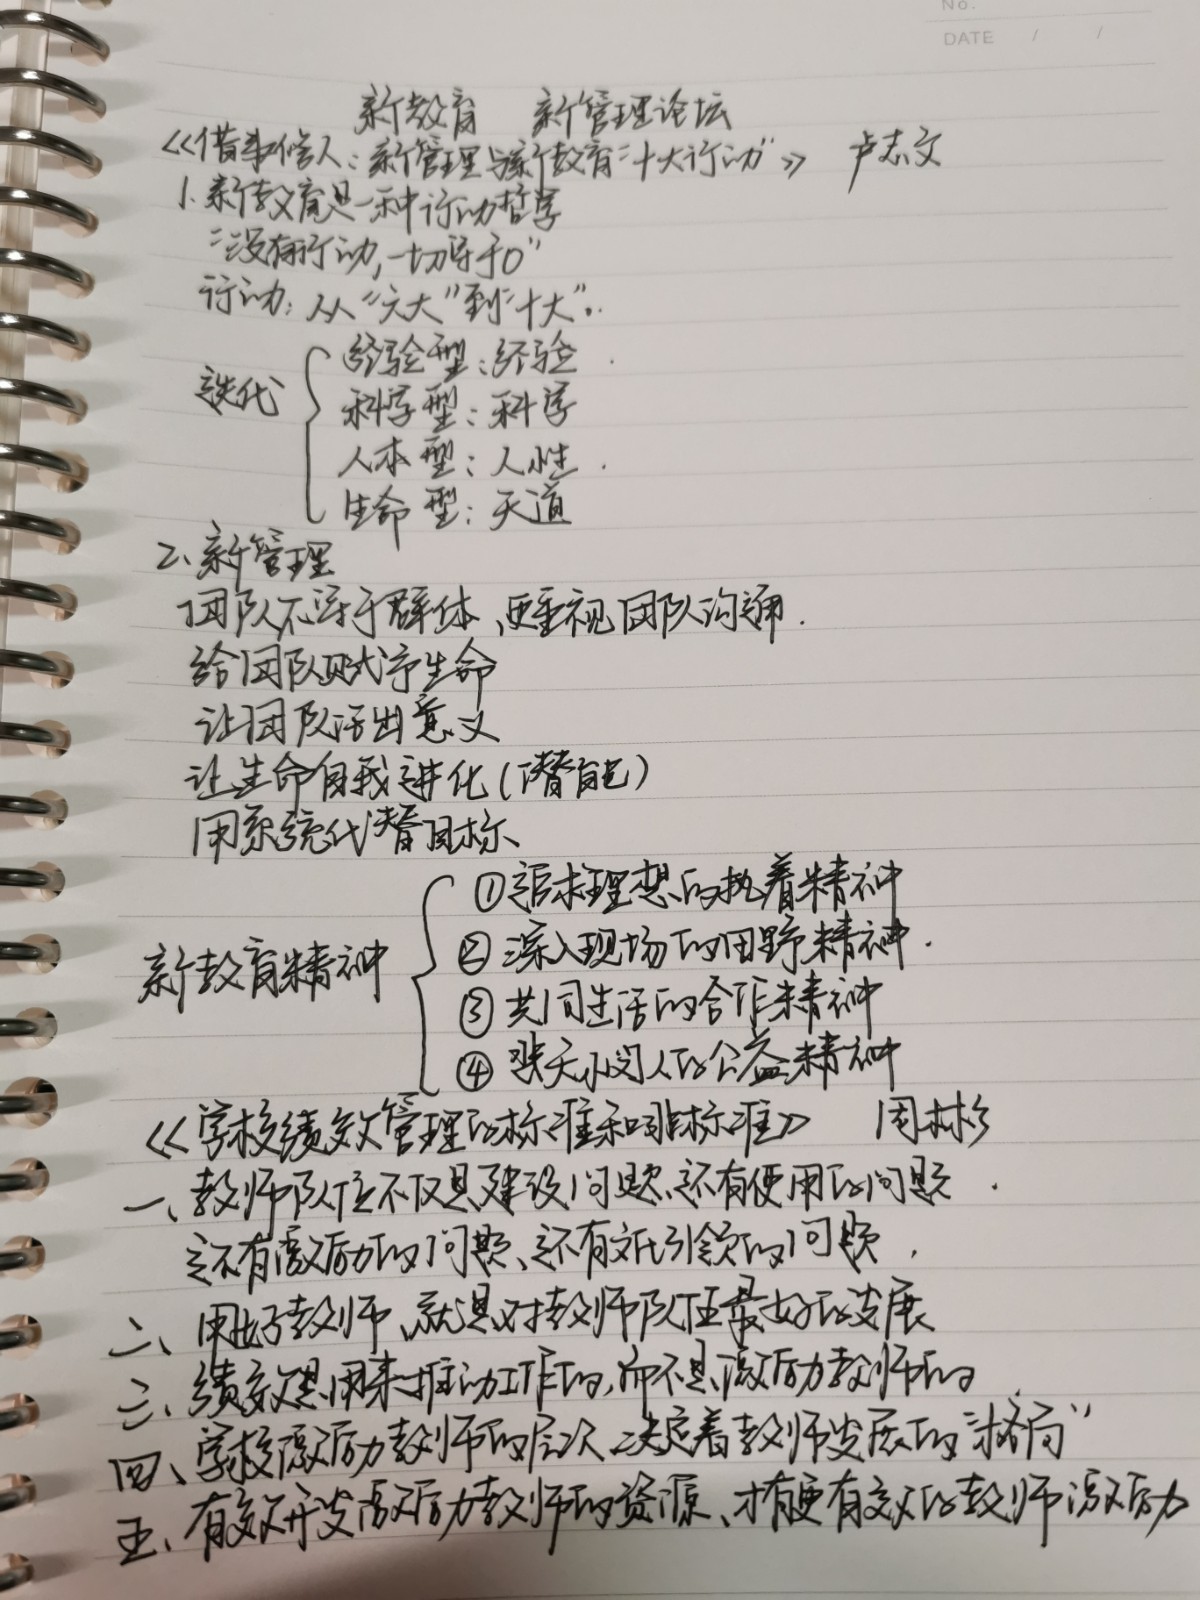 No.
DATE / /
新教育 新管理论坛
《借事修人：新管理与新教育“十大行动”》 卢志文
1. 新教育是一种行动哲学
“没有行动，一切等于0”
行动：从“六大”到“十大”.
迭代
经验型：经验.
科学型：科学
人本型：人性.
生命型：天道
2、新管理
团队不等于群体、更重视团队沟通.
给团队赋予生命
让团队活出意义
让生命自我进化（潜能）
用系统代替目标、
新教育精神
①追求理想的执着精神
②深入现场的田野精神.
③共同生活的合作精神
④悲天悯人的公益精神
《学校绩效管理的标准和非标准》 周彬
一、教师队伍不仅是建设问题、还有使用的问题.
还有激励的问题、还有文化引领的问题.
二、用好教师、就是对教师队伍最好的发展
三、绩效是用来推动工作的，而不是激励教师的
四、学校激励教师的层次、决定着教师发展的“格局”
五、有效开发激励教师的资源、才有更有效的教师激励